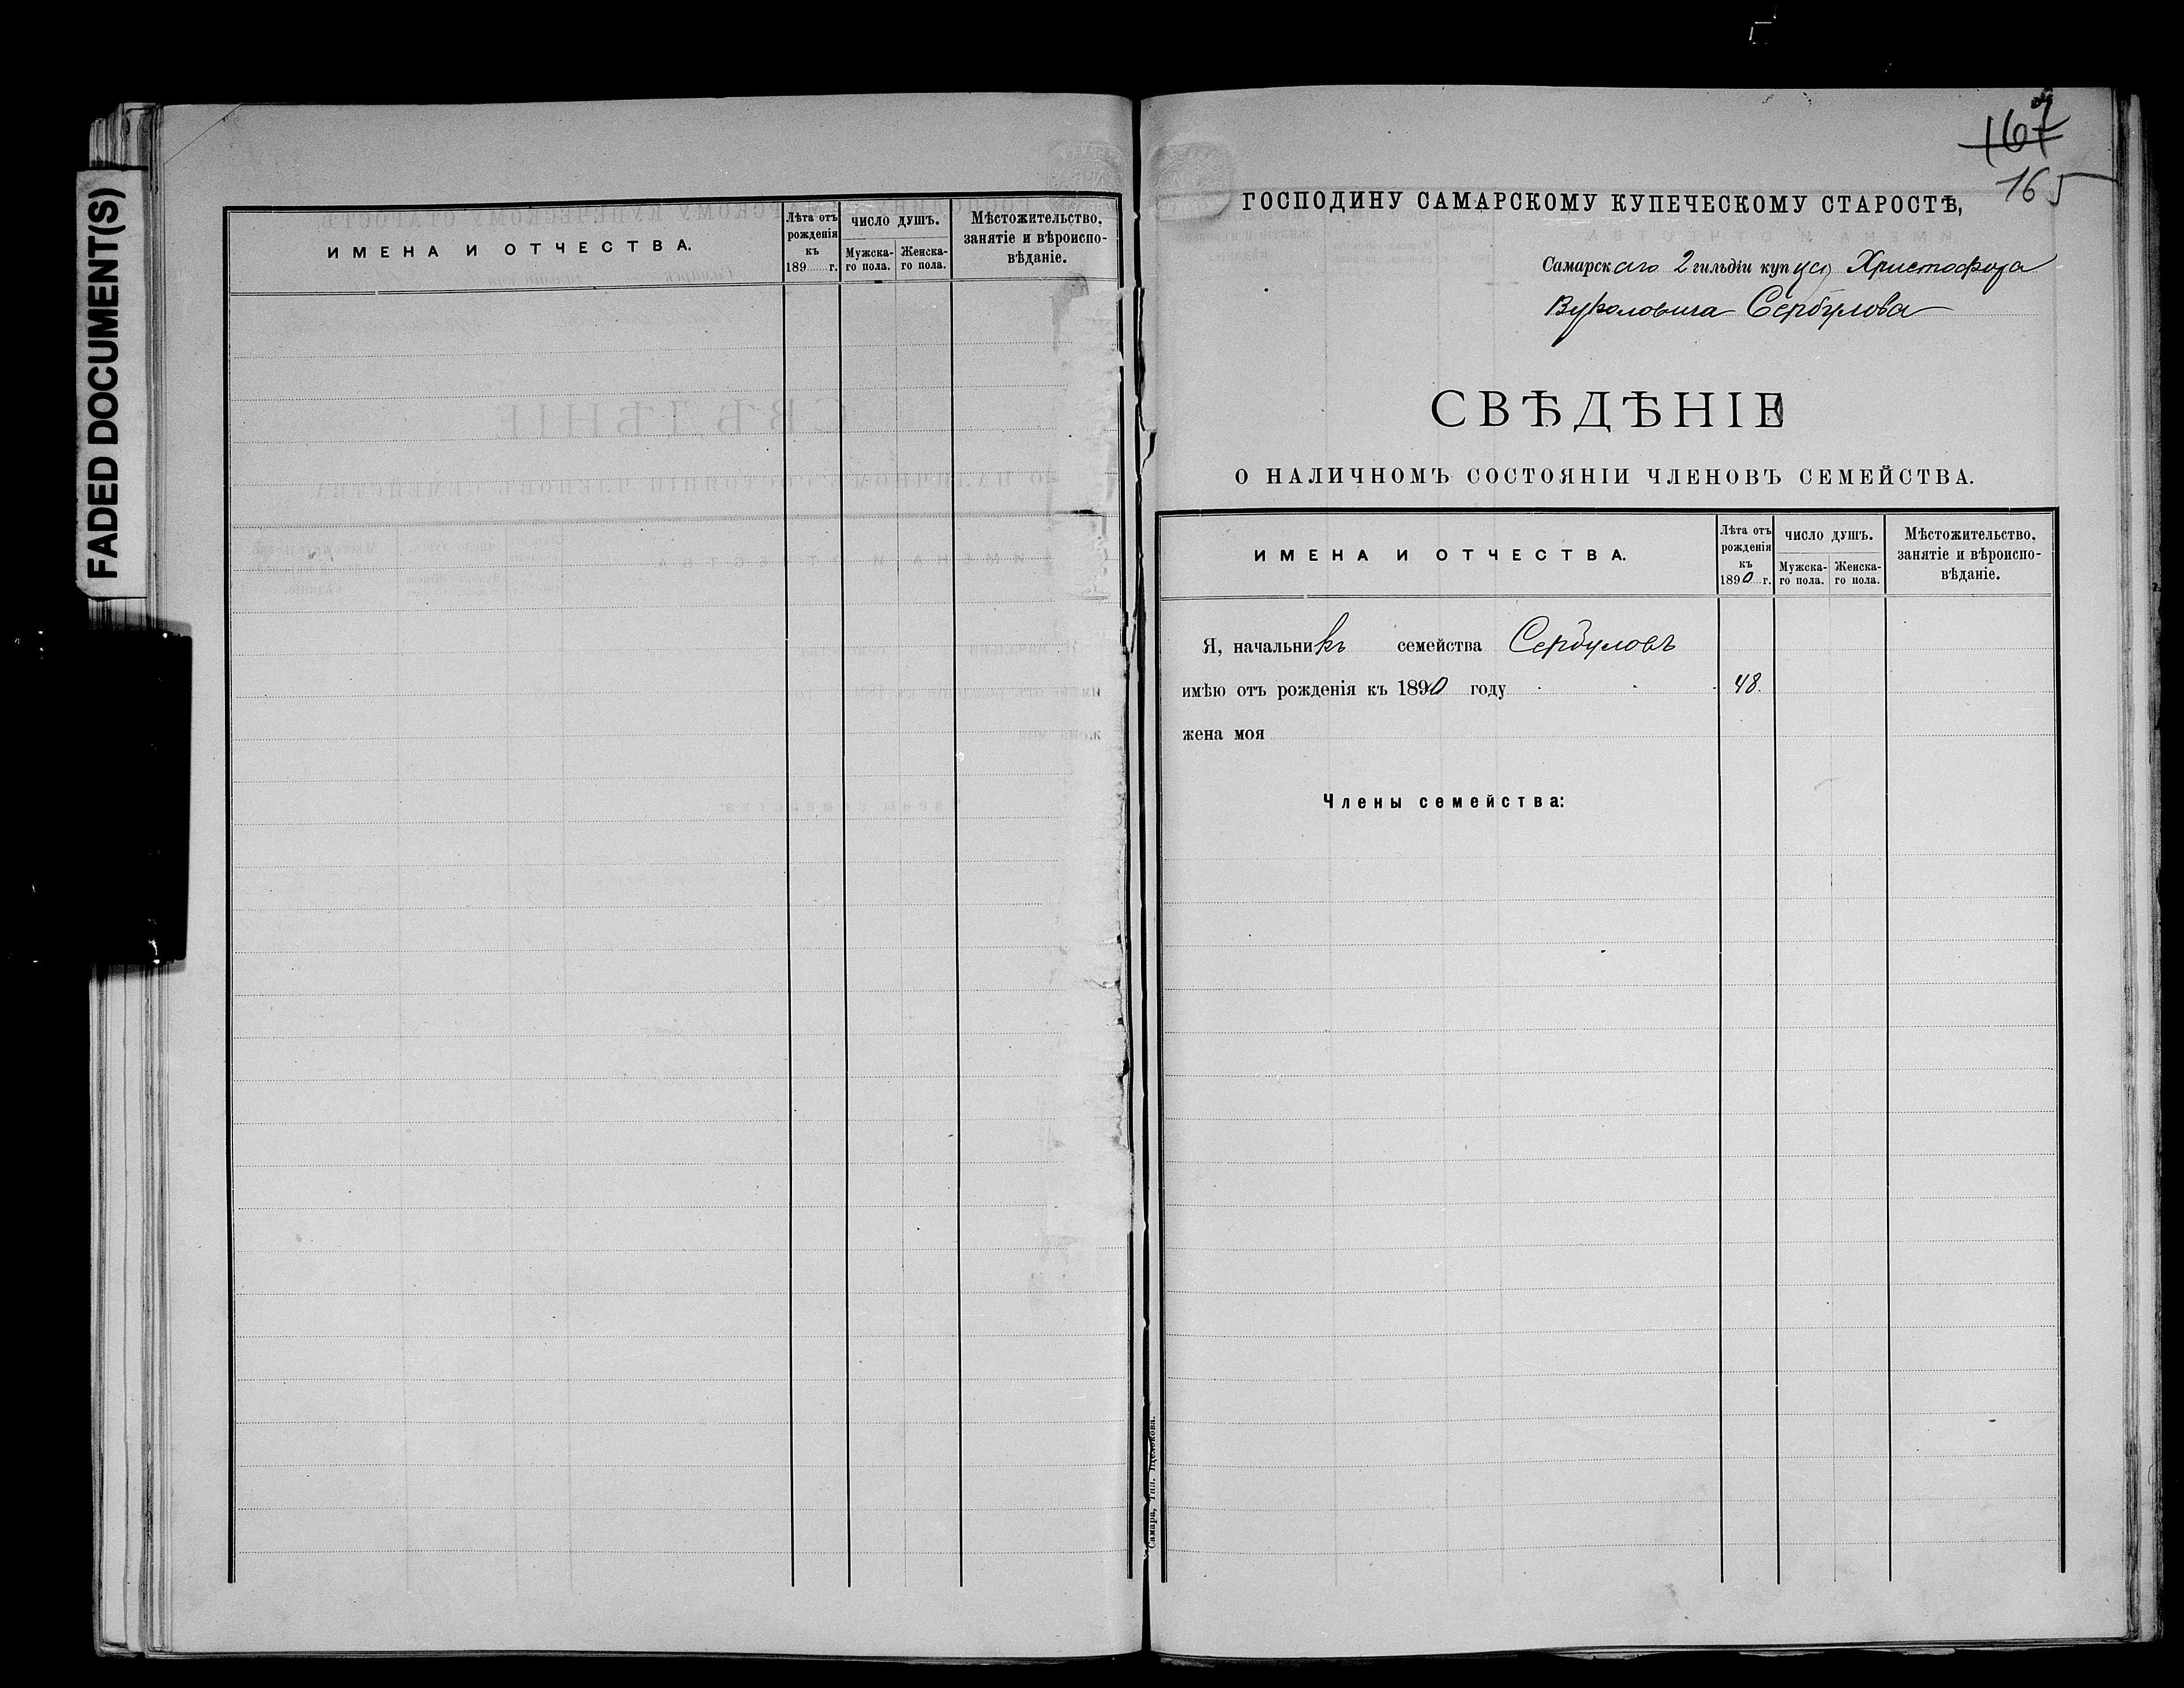 FADED DOCUMENT(S)
ИМЕНА И ОТЧЕСТВА.
Лѣта отъ
рожденія
къ
189 г.
ЧИСЛО ДУШЪ.
Мужска-
го пола.
Женска-
го пола.
Мѣстожительство,
занятіе и вѣроиспо-
вѣданіе.
167
165
ГОСПОДИНУ САМАРСКОМУ КУПЕЧЕСКОМУ СТАРОСТѢ,
Самарскаго 2 гильдіи купца Христофора
Вуколовича Сербулова
СВѢДѢНІЕ
О НАЛИЧНОМЪ СОСТОЯНІИ ЧЛЕНОВЪ СЕМЕЙСТВА.
ИМЕНА И ОТЧЕСТВА.
Лѣта отъ
рожденія
къ
1890 г.
ЧИСЛО ДУШЪ.
Мужска-
го пола.
Женска-
го пола.
Мѣстожительство,
занятіе и вѣроиспо-
вѣданіе.
Я, начальникъ семейства Сербуловъ
имѣю отъ рожденія къ 1890 году 48.
жена моя
Члены семейства:
Самара, Тип. Щелокова.